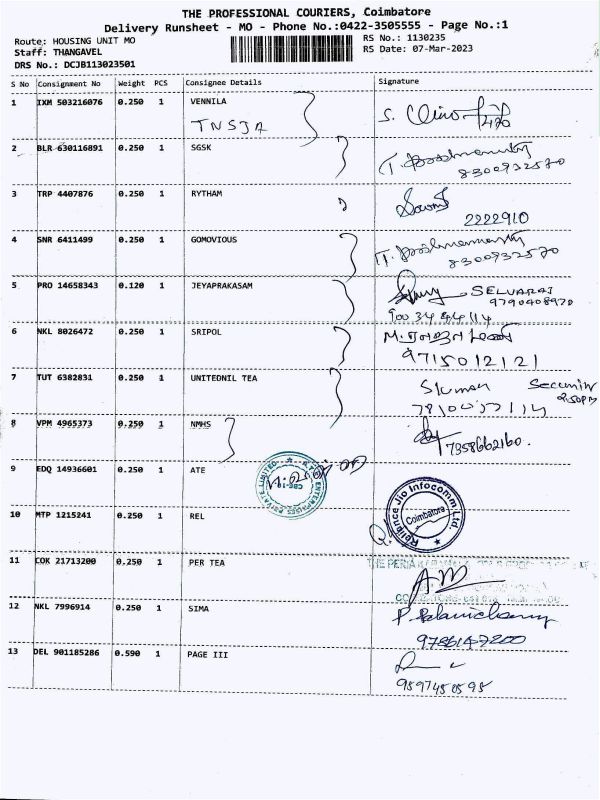 THE PROFESSIONAL COURIERS, Coimbatore
Delivery Runsheet - MO - Phone No.:0422-3505555 - Page No.:1
Route: HOUSING UNIT MO RS No.: 1130235
Staff: THANGAVEL RS Date: 07-Mar-2023
DRS No.: DCJB113023501
S No Consignment No Weight PCS Consignee Details Signature
1 IXM 503216076 0.250 1 VENNILA
TNSJA
2 BLR 630116891 0.250 1 SGSK
8300932570
3 TRP 4407876 0.250 1 RYTHAM
2222910
4 SNR 6411499 0.250 1 GOMOVIOUS
8300932570
5 PRO 14658343 0.120 1 JEYAPRAKASAM
SELVARAJ
9790408970
6 NKL 8026472 0.250 1 SRIPOL
9715012121
7 TUT 6382831 0.250 1 UNITEDNIL TEA
Security
2.50PM
8 VPM 4965373 0.250 1 NMHS
7358662160.
9 EDQ 14936601 0.250 1 ATE
10 MTP 1215241 0.250 1 REL
Reliance Jio Infocomm Ltd.
Coimbatore
11 COK 21713200 0.250 1 PER TEA
12 NKL 7996914 0.250 1 SIMA
P. Palanichamy
9786147200
13 DEL 901185286 0.590 1 PAGE III
9597450595